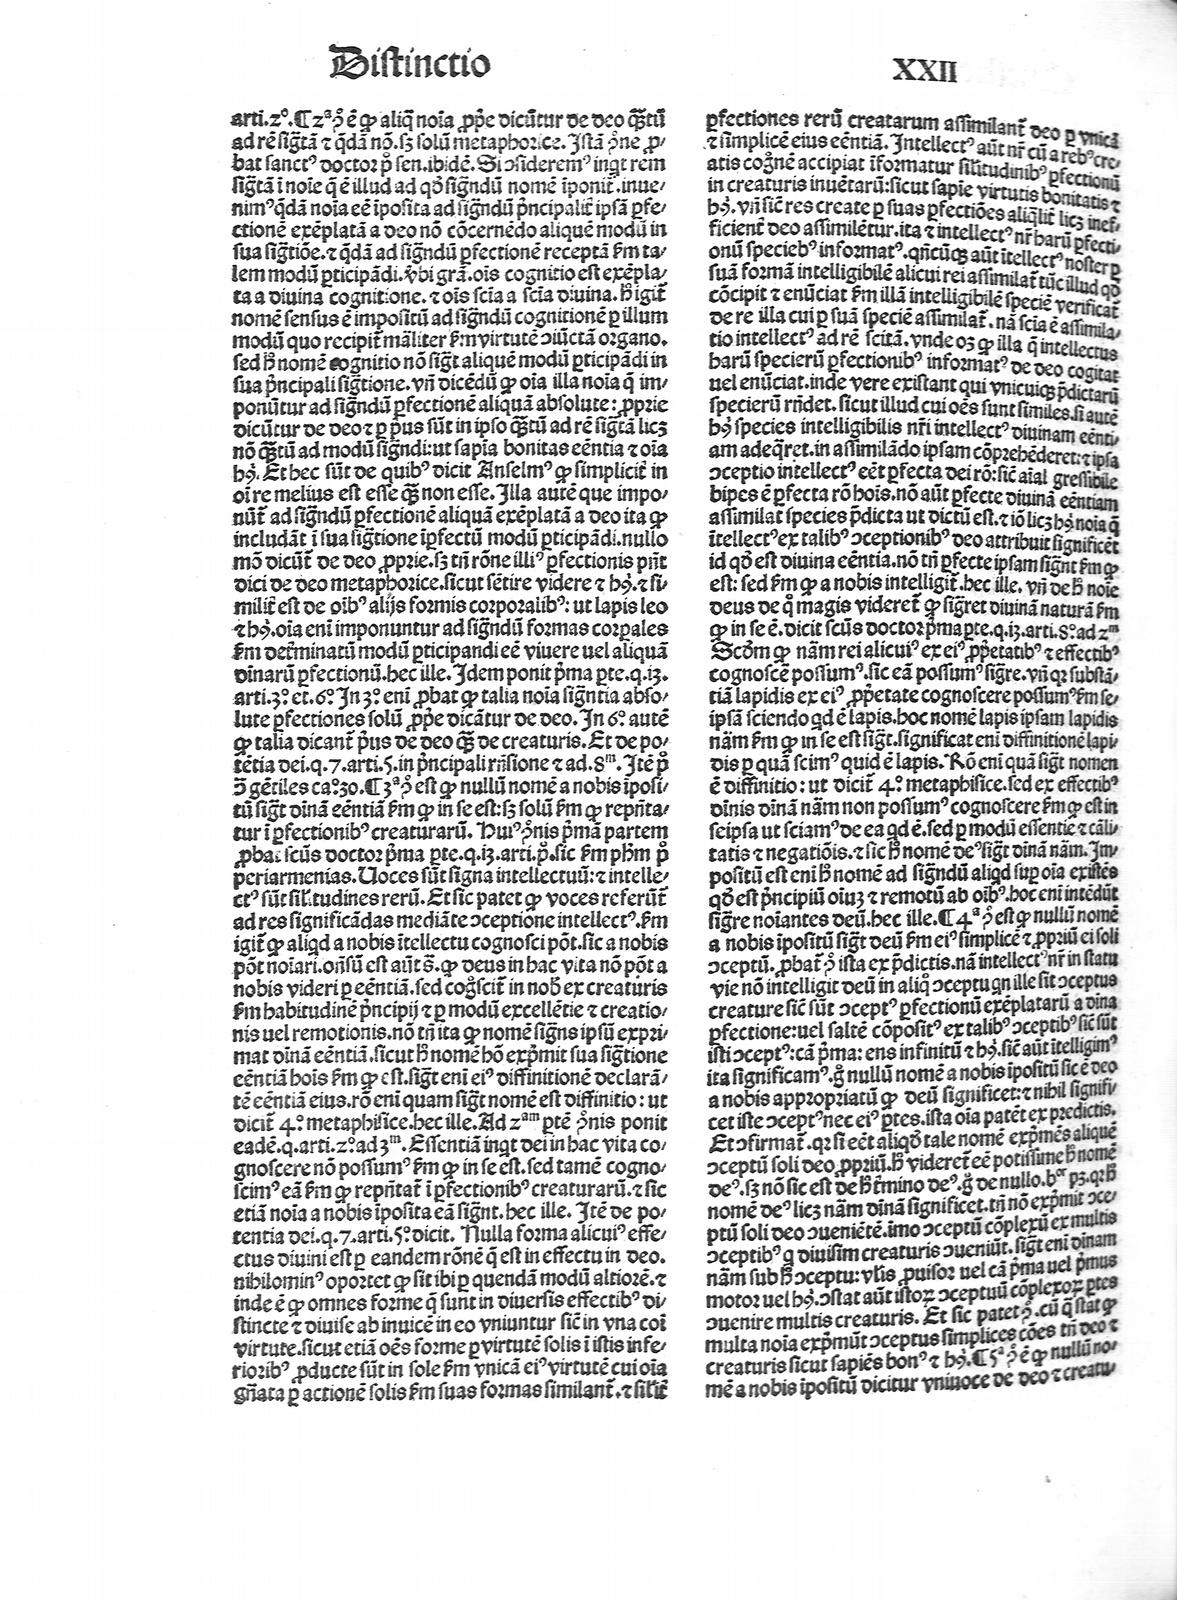 Distinctio
XXII
arti.2°. ¶ 2ª ꝯ̊ ē ꝙ aliq̄ noīa ꝓp̄e dicūtur de deo q̄ꝫtū
ad rē sig̅tā ⁊ q̄dā nō. sꝫ solū metaphorice. Istā ꝯ̊ne ꝓ⸗
bat sanctꝰ doctor p̊ sen. ibidē. Si ↄsideremꝰ inqt rem
sig̅tā ī noīe q̄ ē illud ad qd̊ sig̅ndū nomē īponit̄. inue⸗
nimꝰ q̄dā noīa eē īposita ad sig̅ndū p̊ncipalit̄ ip̄sā ꝑfe⸗
ctionē exēplatā a deo nō cōcernēdo aliquē modū in
sua sig̅tiōe. ⁊ q̄dā ad sig̅ndū ꝑfectionē receptā ẜm ta⸗
lem modū ꝑticipādi. v̊bi gr̄a. oīs cognitio est exēpla⸗
ta a diuina cognitione. ⁊ oīs scīa a scīa diuina. h̊ igit̄
nomē sensus ē impositū ad sig̅ndū cognitionē ꝑ illum
modū quo recipit̄ māliter ẜm virtutē ↄiūctā organo.
sed h̊ nomē cognitio nō sig̅t aliquē modū ꝑticipādi in
sua p̊ncipali sig̅tione. vn̄ dicēdū ꝙ oīa illa noīa q̄ im⸗
ponūtur ad sig̅ndū ꝑfectionē aliquā absolute: ꝓprie
dicūtur de deo ⁊ ꝑ p̊us sūt in ipso q̄ꝫtū ad rē sig̅tā licꝫ
nō q̄ꝫtū ad modū sig̅ndi: ut sapīa bonitas eēntia ⁊ oīa
hꝰ. Et hec sūt de quibꝰ dicit Anselmꝰ ꝙ simplicit̄ in
oī re melius est esse q̄ꝫ non esse. Illa autē que impo⸗
nūt̄ ad sig̅ndū ꝑfectionē aliquā exēplatā a deo ita ꝙ
includāt ī sua sig̅tione īꝑfectū modū ꝑticipādi. nullo
mō dicūt̄ de deo ꝓprie. sꝫ tn̄ rōne illiꝰ ꝑfectionis pn̄t
dici de deo metaphorice. sicut sētire videre ⁊ hꝰ. ⁊ si⸗
milit̄ est de oībꝰ alijs formis corporalibꝰ: ut lapis leo
⁊ hꝰ. oīa enī imponuntur ad sig̅ndū formas corꝑales
ẜm det̄minatū modū ꝑticipandi eē viuere uel aliquā
dīnarū ꝑfectionū. hec ille. Idem ponit p̊ma ꝑte. q. 13.
arti. 3°. et. 6°. In 3°. enī ꝓbat ꝙ talia noīa sig̅ntia abso⸗
lute ꝑfectiones solū ꝓp̄e dicātur de deo. In 6°. autē
ꝙ talia dicant̄ p̊us de deo q̄ꝫ de creaturis. Et de po⸗
tētia dei. q. 7. arti. 5. in p̊ncipali rn̄sione ⁊ ad. 8ᵐ. Itē p̊
ↄ̄ gētiles ca°. 30. ¶ 3ª ꝯ̊ est ꝙ nullū nomē a nobis īposi⸗
tū sig̅t dīnā eēntiā ẜm ꝙ in se est: sꝫ solū ẜm ꝙ repn̄ta⸗
tur ī ꝑfectionibꝰ creaturarū. Huiꝰ ꝯ̊nis p̊mā partem
ꝓbat scūs doctor p̊ma ꝑte. q. 13. arti. p̊. sic ẜm phm̄ p̊
periarmenias. Uoces sūt signa intellectuū: ⁊ intelle⸗
ctꝰ sūt sil̄itudines rerū. Et sic patet ꝙ voces referūt̄
ad res significādas mediāte ↄceptione intellectꝰ. ẜm
igit̄ ꝙ aliqd a nobis ītellectu cognosci pōt. sic a nobis
pōt noīari. on̄sū est aūt s̄. ꝙ deus in hac vita nō pōt a
nobis videri ꝑ eēntiā. sed cog̊scit̄ in nob̄ ex creaturis
ẜm habitudinē p̊ncipij ⁊ ꝑ modū excellētie ⁊ creatio⸗
nis uel remotionis. nō tn̄ ita ꝙ nomē sig̅ns ipsū expri⸗
mat dīnā eēntiā. sicut h̊ nomē hō exp̊mit sua sig̅tione
eēntiā hoīs ẜm ꝙ est. sig̅t enī eiꝰ diffinitionē declarā⸗
tē eēntiā eius. rō enī quam sig̅t nomē est diffinitio: ut
dicit̄ 4°. metaphisice. hec ille. Ad 2ᵃᵐ ptē ꝯ̊nis ponit
eadē. q. arti. 2°. ad 3ᵐ. Essentiā inqt dei in hac vita co⸗
gnoscere nō possumꝰ ẜm ꝙ in se est. sed tamē cogno⸗
scimꝰ eā ẜm ꝙ repn̄tat̄ ī ꝑfectionibꝰ creaturarū. ⁊ sic
etiā noīa a nobis īposita eā sig̅nt. hec ille. Itē de po⸗
tentia dei. q. 7. arti. 5°. dicit. Nulla forma alicuiꝰ effe⸗
ctus diuini est ꝑ eandem rōnē q̄ est in effectu in deo.
nihilominꝰ oportet ꝙ sit ibi ꝑ quendā modū altiorē. ⁊
inde ē ꝙ omnes forme q̄ sunt in diuersis effectibꝰ di⸗
stincte ⁊ diuise ab inuicē in eo vniuntur sic̄ in vna cōi
virtute. sicut etiā oēs forme ꝑ virtutē solis ī istis infe⸗
rioribꝰ ꝓducte sūt in sole ẜm vnicā eiꝰ virtutē cui oīa
gn̄ata ꝑ actionē solis ẜm suas formas similant̄. ⁊ sil̄it̄
ꝑfectiones rerū creatarum assimilant̄ deo ꝑ vnicā
⁊ simplicē eius eēntiā. Intellectꝰ aūt nr̄ cū a rebꝰ cre⸗
atis cogn̄e accipiat īformatur sil̄itudinibꝰ ꝑfectionū
in creaturis inuētarū: sicut sapīe virtutis bonitatis ⁊
hꝰ. vn̄ sic̄ res create ꝑ suas ꝑfectiōes aliqlit̄ licꝫ inef⸗
ficient̄ deo assimilētur. ita ⁊ intellectꝰ nr̄ harū ꝑfecti⸗
onū speciebꝰ informatꝰ. qn̄cūqꝫ aūt ītellectꝰ noster ꝑ
suā formā intelligibilē alicui rei assimilat̄ tūc illud qd̊
cōcipit ⁊ enūciat ẜm illā intelligibilē speciē verificat̄
de re illa cui ꝑ suā speciē assimilat̄. nā scīa ē assimila⸗
tio intellectꝰ ad rē scitā. vnde oꝫ ꝙ illa q̄ intellectus
harū specierū ꝑfectionibꝰ informatꝰ de deo cogitat
uel enūciat. inde vere existant qui vnicuiqꝫ p̄dictarū
specierū rn̄det. sicut illud cui oēs sunt similes. si autē
hꝰ species intelligibilis nr̄i intellectꝰ diuinam eēnti⸗
am adeq̄ret. in assimilādo ipsam cōprehēderet: ⁊ ipsa
ↄceptio intellectꝰ eēt ꝑfecta dei rō: sic̄ aīal gressibile
bipes ē ꝑfecta rō hoīs. nō aūt ꝑfecte diuinā eēntiam
assimilat species p̄dicta ut dictū est. ⁊ iō licꝫ hꝰ noīa q̄
ītellectꝰ ex talibꝰ ↄceptionibꝰ deo attribuit significēt
id qd̊ est diuina eēntia. nō tn̄ ꝑfecte ipsam sig̅nt ẜm ꝙ
est: sed ẜm ꝙ a nobis intelligit̄. hec ille. vn̄ de h̊ noīe
deus de q̊ magis videret̄ ꝙ sig̅ret diuinā naturā ẜm
ꝙ in se ē. dicit scūs doctor p̊ma ꝑte. q. 13. arti. 8°. ad 2ᵐ
Scd̄m ꝙ nām rei alicuiꝰ ex eiꝰ ꝓp̄etatibꝰ ⁊ effectibꝰ
cognoscē possumꝰ. sic eā possumꝰ sig̅re. vn̄ qꝛ substā⸗
tiā lapidis ex eiꝰ ꝓp̄etate cognoscere possumꝰ ẜm se⸗
ipsā sciendo qd ē lapis. hoc nomē lapis ipsam lapidis
nām ẜm ꝙ in se est sig̅t. significat enī diffinitionē lapi⸗
dis ꝑ quā scimꝰ quid ē lapis. Rō enī quā sig̅t nomen
ē diffinitio: ut dicit̄ 4°. metaphisice. sed ex effectibꝰ
dīnis dīnā nām non possumꝰ cognoscere ẜm ꝙ est in
seipsa ut sciamꝰ de ea qd ē. sed ꝑ modū essentie ⁊ cāli⸗
tatis ⁊ negatiōis. ⁊ sic h̊ nomē deꝰ sig̅t dīnā nām. Im⸗
positū est enī h̊ nomē ad sig̅ndū aliqd suꝑ oīa existēs
qd̊ est p̊ncipiū oīuꝫ ⁊ remotū ab oībꝰ. hoc enī intēdūt
sig̅re noīantes deū. hec ille. ¶ 4ª ꝯ̊ est ꝙ nullū nomē
a nobis īpositū sig̅t deū ẜm eiꝰ simplicē ⁊ ꝓpriū ei soli
ↄceptū. ꝓbat̄ ꝯ̊ ista ex p̄dictis. nā intellectꝰ nr̄ in statu
vie nō intelligit deū in aliq̊ ↄceptu qn ille sit ↄceptus
creature sic̄ sūt ↄceptꝰ ꝑfectionū exēplatarū a dīna
ꝑfectione: uel saltē cōpositꝰ ex talibꝰ ↄceptibꝰ sic̄ sūt
isti ↄceptꝰ: cā p̊ma: ens infinitū ⁊ hꝰ. sic̄ aūt ītelligimꝰ
ita significamꝰ. g̊ nullū nomē a nobis īpositū sic ē deo
a nobis appropriatū ꝙ deū significet: ⁊ nihil signifi⸗
cet iste ↄceptꝰ nec eiꝰ ꝑtes. ista oīa patēt ex predictis.
Et ↄfirmat̄. qꝛ si eēt aliqd̊ tale nomē exp̊mēs aliquē
ↄceptū soli deo ꝓpriū. h̊ videret̄ eē potissime h̊ nomē
deꝰ. sꝫ nō sic est de h̊ t̄mino deꝰ. g̊ de nullo. hᵒʳ pꝫ. qꝛ h̊
nomē deꝰ licꝫ nām dīnā significet. tn̄ nō exp̊mit ↄce⸗
ptū soli deo ↄueniētē. imo ↄceptū cōplexū ex multis
ↄceptibꝰ q diuisim creaturis ↄueniūt. sig̅t enī dīnam
nām sub h̊ ↄceptu: vl̄is ꝓuisor uel cā p̊ma uel p̊mus
motor uel hꝰ. ↄstat aūt istoꝝ ↄceptuū cōplexoꝝ ꝑtes
ↄuenire multis creaturis. Et sic patet ꝯ̊. cū q̊ stat ꝙ
multa noīa exp̊mūt ↄceptus simplices cōes tn̄ deo ⁊
creaturis sicut sapiēs bonꝰ ⁊ hꝰ. ¶ 5ª ꝯ̊ ē ꝙ nullū no⸗
mē a nobis īpositū dicitur vniuoce de deo ⁊ creatu⸗